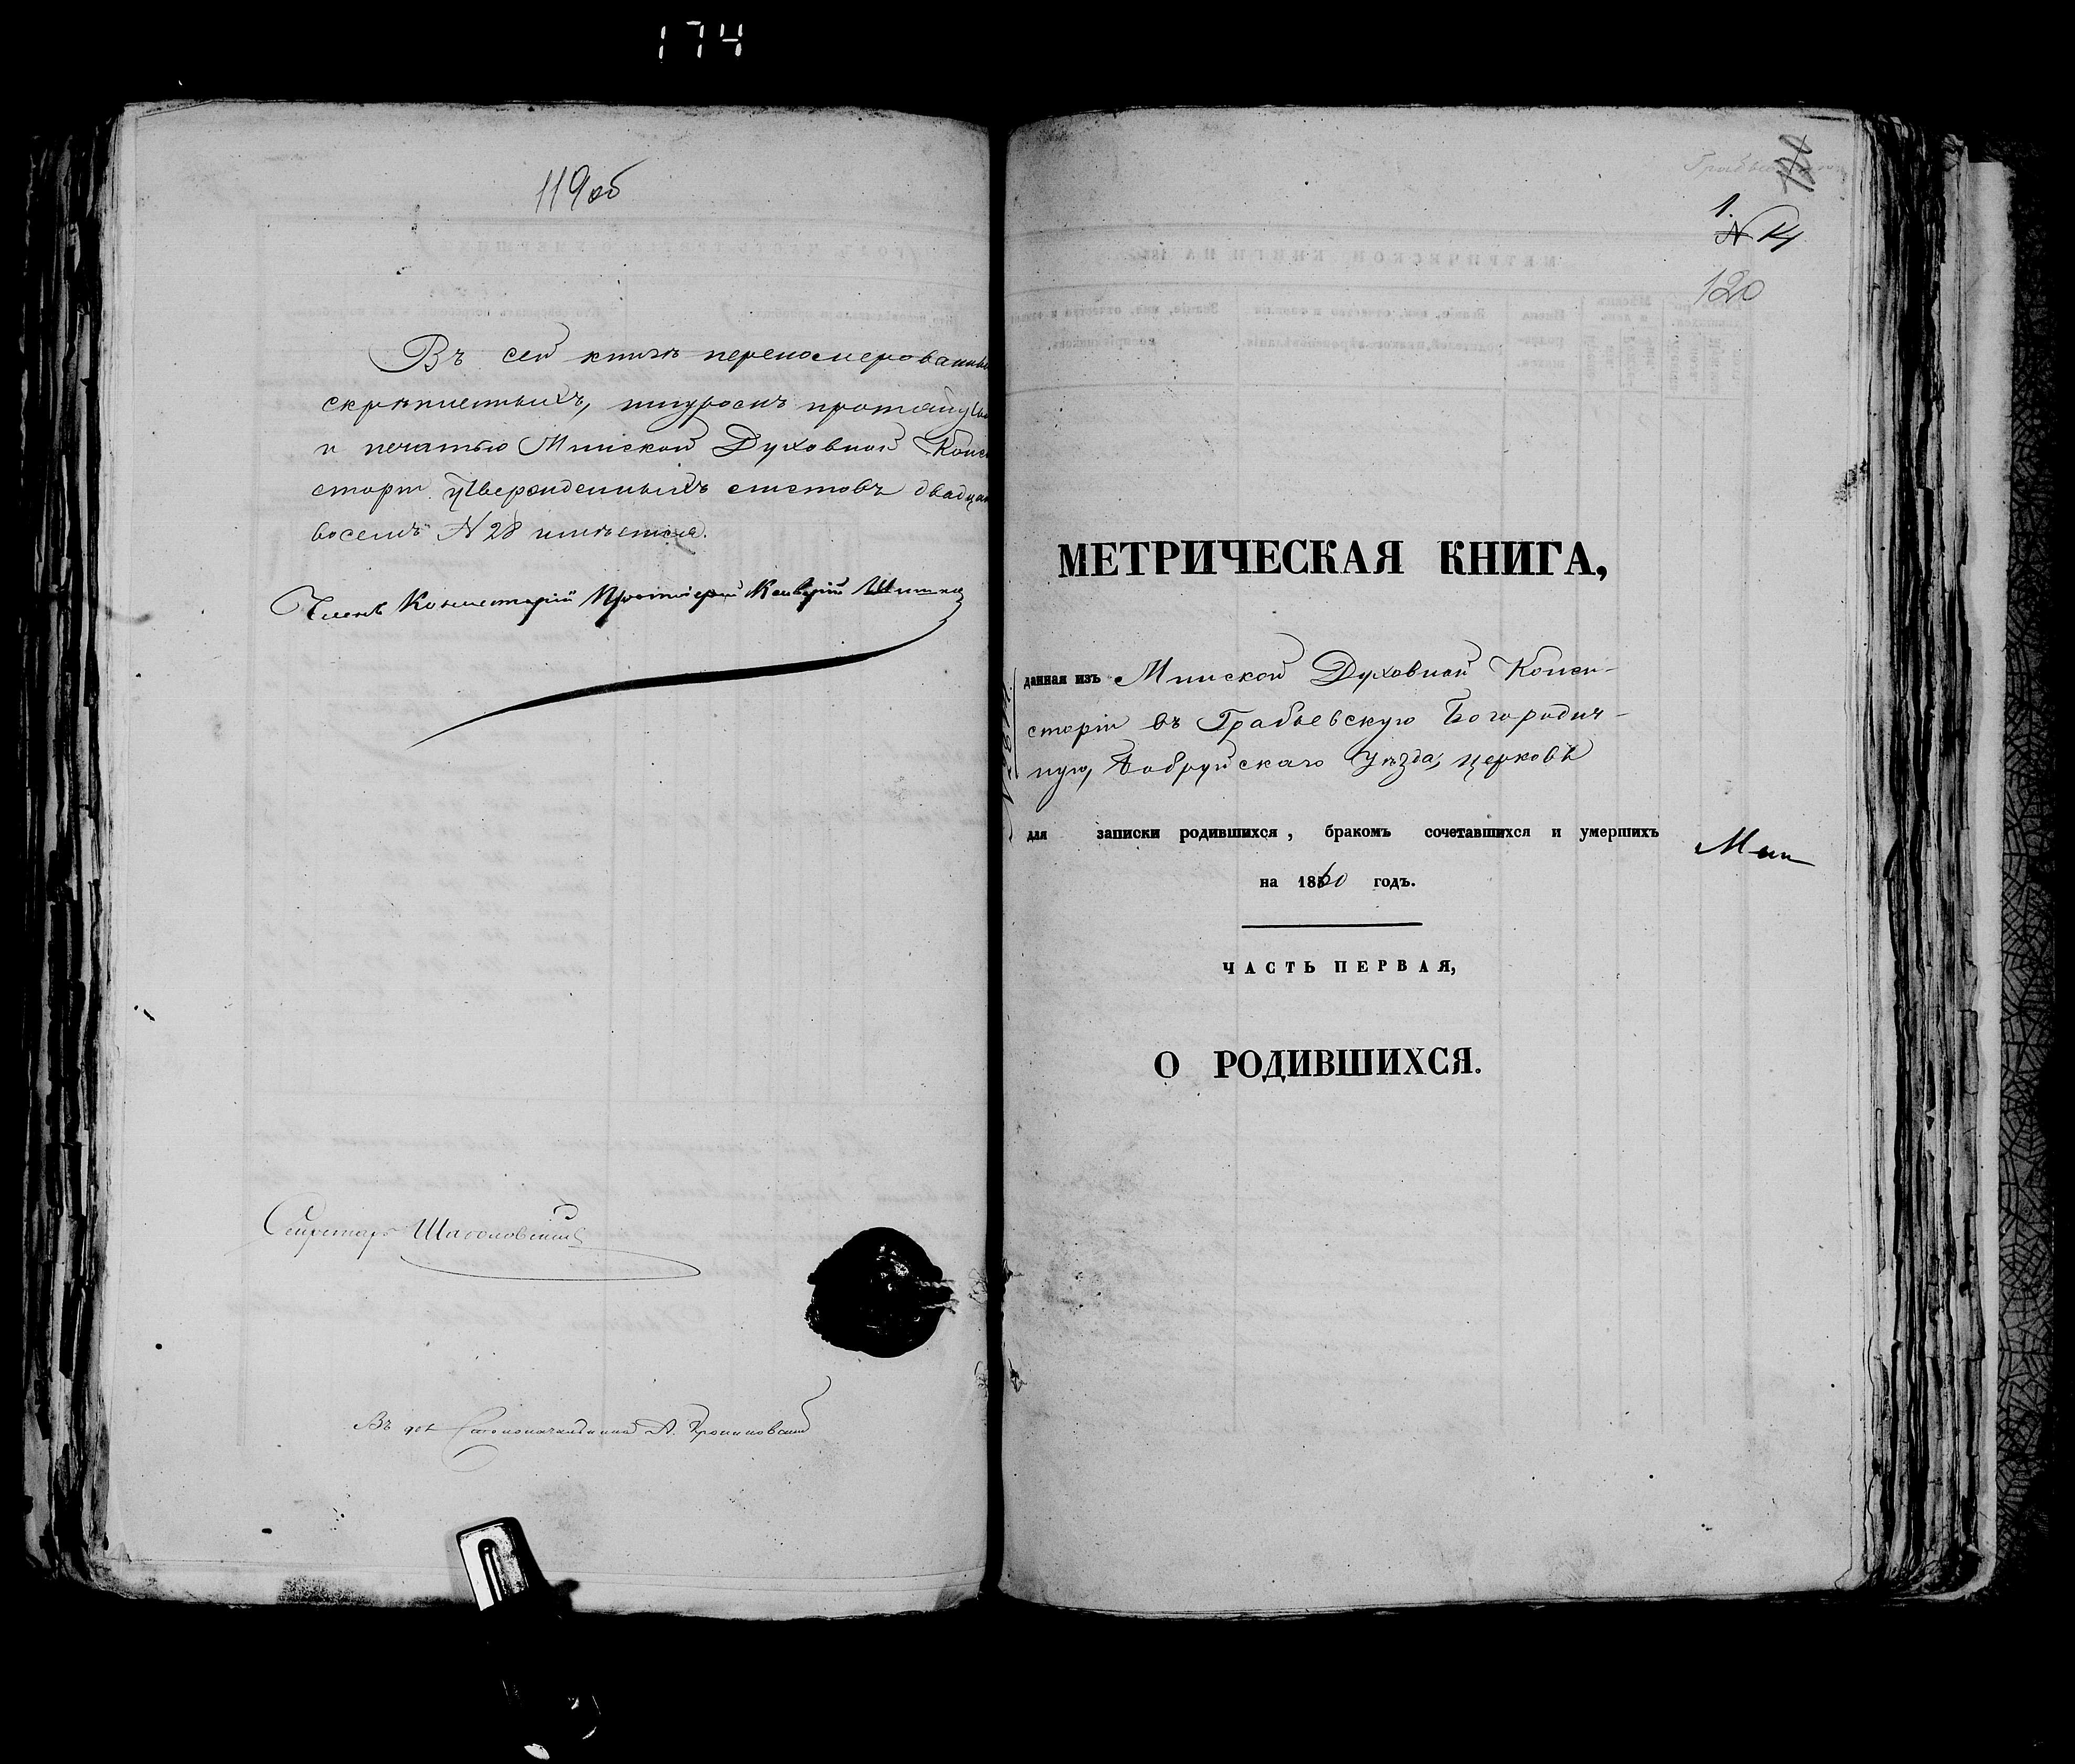 174
119об
Въ сей книгѣ перенумерованны
скрѣпленныхъ, шнуромъ
и печатью Минской Духовной Конси
сторіи утвержденныхъ листовъ двадца
восемь N 28 имѣется.
Членъ Консисторіи Протоіерей
Секретарь
Въ Столоначальника А.
1.
N 14
120
МЕТРИЧЕСКАЯ КНИГА,
данная изъ Минской Духовной Конси-
сторіи въ Грабьевскую Богородич-
ную, Бобруйскаго Уѣзда, церковь
для записки родившихся, бракомъ сочетавшихся и умершихъ
на 1860 годъ.
Мин
ЧАСТЬ ПЕРВАЯ,
О РОДИВШИХСЯ.